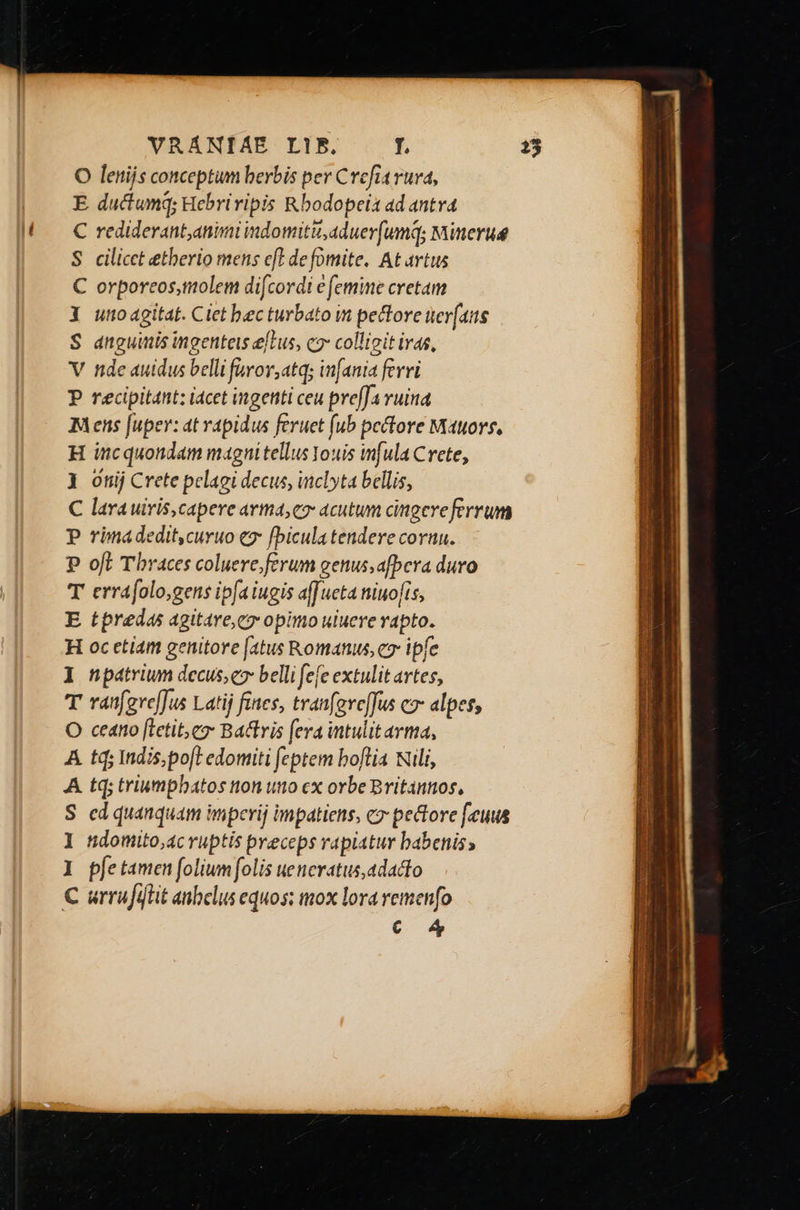 VRANIAE LIB. I. 23
O lenijs conceptum herbis per Cresia rura,
E ductumq; Hebri ripis Rhodopeia ad antra
C rediderant, animi indomitũ, aduersumq; Mineruæ
S cilicet ætherio mens est de fomite. At artus
C orporeos, molem discordi è semine cretam
I uno agitat. Ciet hæc turbato in pectore uersans
S anguinis ingenteis æstus, & colligit iras,
V nde auidus belli furor, atq; insania ferri
P recipitant: iacet ingenti ceu pressa ruina
M ens super: at rapidus feruet sub pectore Mauors.
H inc quondam magni tellus Iouis insula Crete,
I onij Crete pelagi decus, inclyta bellis,
C lara uiris, capere arma, & acutum cingere ferrum
P rima dedit, curuo & spicula tendere cornu.
P ost Thraces coluere, ferum genus, aspera duro
T erra solo, gens ipsa iugis assueta niuosis,
E t prædas agitare, & opimo uiuere rapto.
H oc etiam genitore satus Romanus, & ipse
I n patrium decus, & belli sese extulit artes,
T ransgressus Latij fines, transgressus & alpes,
O ceano stetit, & Bactris sera intulit arma,
A tq; Indis, post edomiti septem hostia Nili,
A tq; triumphatos non uno ex orbe Britannos.
S ed quanquam imperij impatiens, & pectore sæuus
I ndomito, ac ruptis præceps rapiatur habenis,
I pse tamen solium solis ueneratus, adacto
C urru sistit anhelus equos: mox lora remenso
C 4